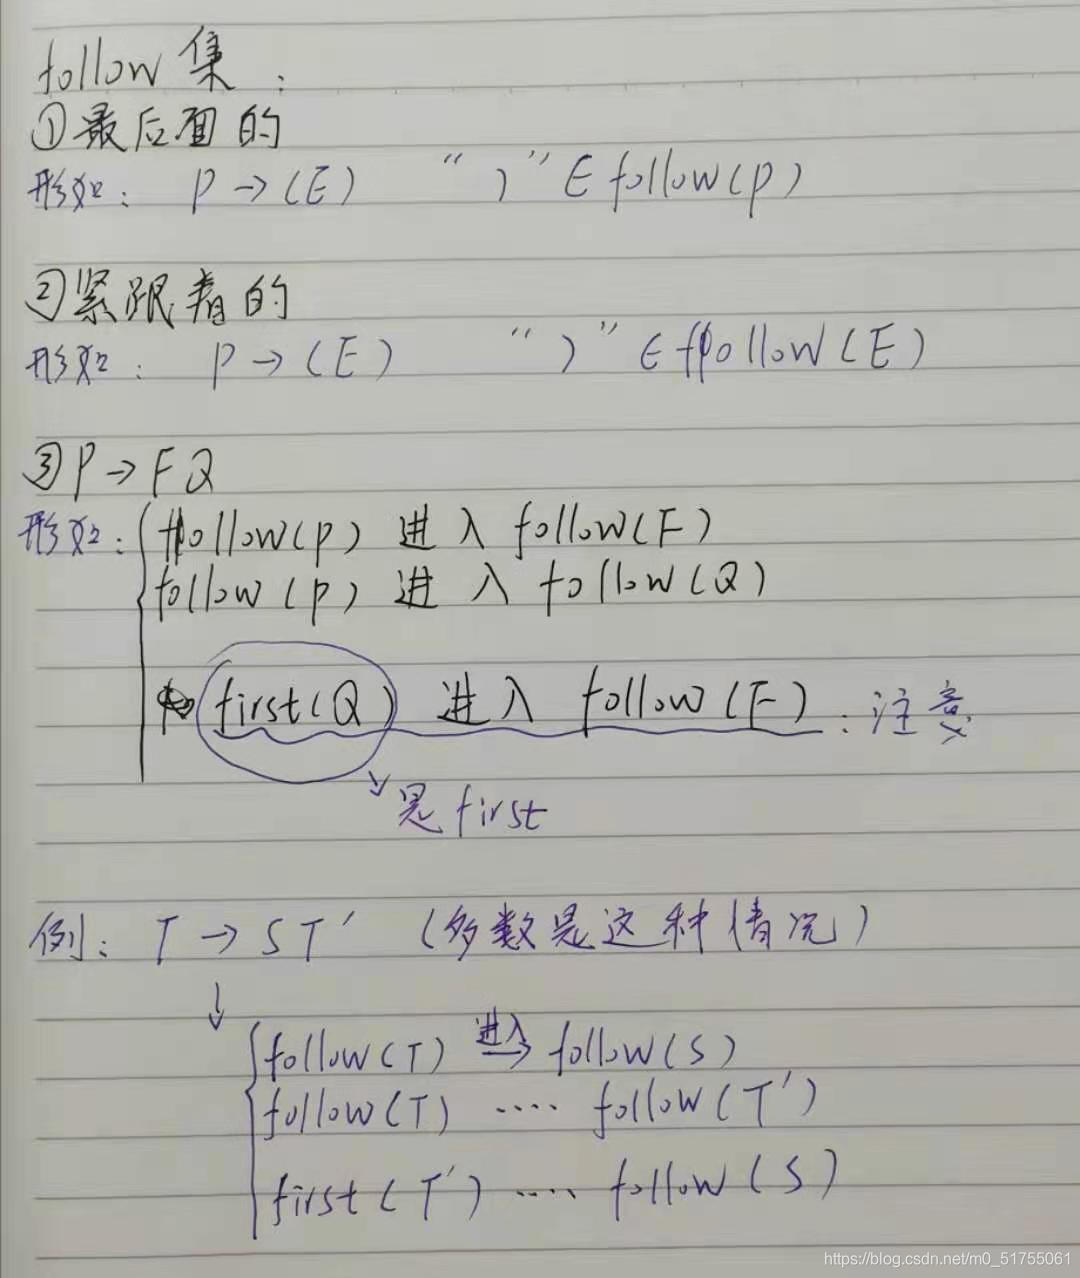 follow集：
①最后面的
形如： P→(E) “)”∈follow(P)
②紧跟着的
形如： P→(E) “)”∈follow(E)
③P→FQ
形如： follow(P) 进入 follow(F)
follow(P) 进入 follow(Q)
first(Q) 进入 follow(F)：注意
是first
例： T→ST′ (多数是这种情况)
↓
follow(T) 进入→ follow(S)
follow(T) ···· follow(T′)
first(T′) ···· follow(S)
https://blog.csdn.net/m0_51755061